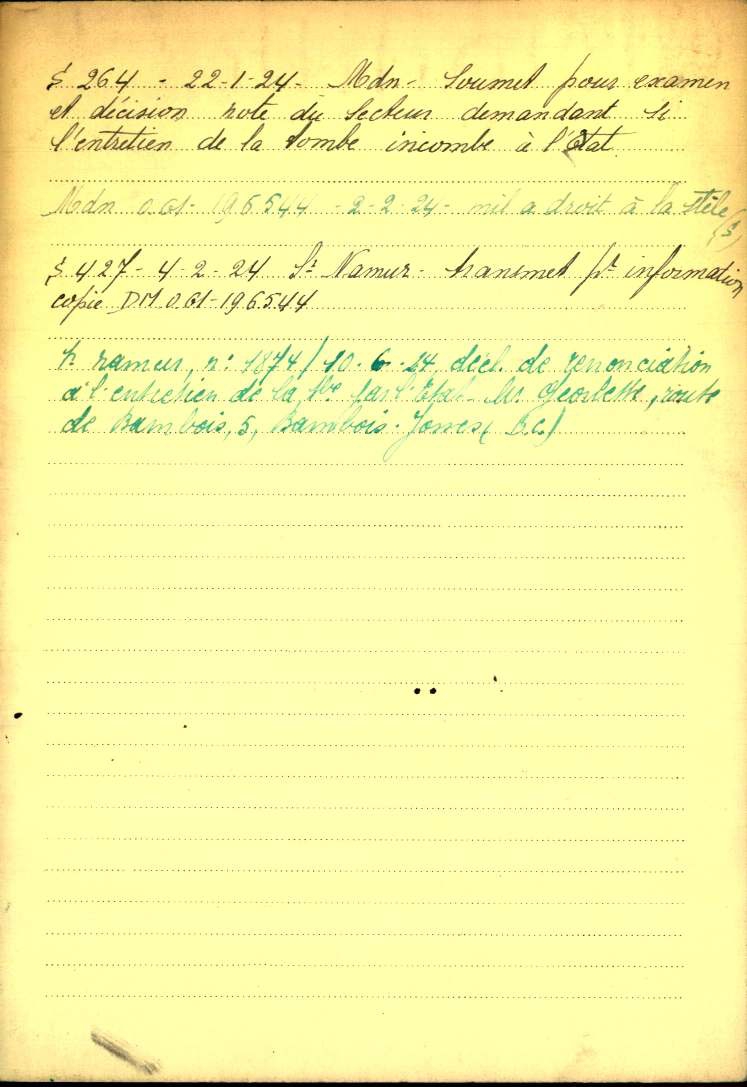 S 264 - 22-1-24 - Mdn - Soumet pour examen
et décision note du Secteur demandant si
l'entretien de la tombe incombe à l'Etat.
Mdn 0.61-196544 - 2-2-24 - mil a droit à la stèle
(S)
S 427 - 4-2-24 Sr Namur - transmet pr information
copie DM 0.61-196544
namur, n: 1874/10-6-24, décl. de renonciation
à l'entretien de la tbe par l'Etat - Mr Georlette, route
de Bambois, 5, Bambois-